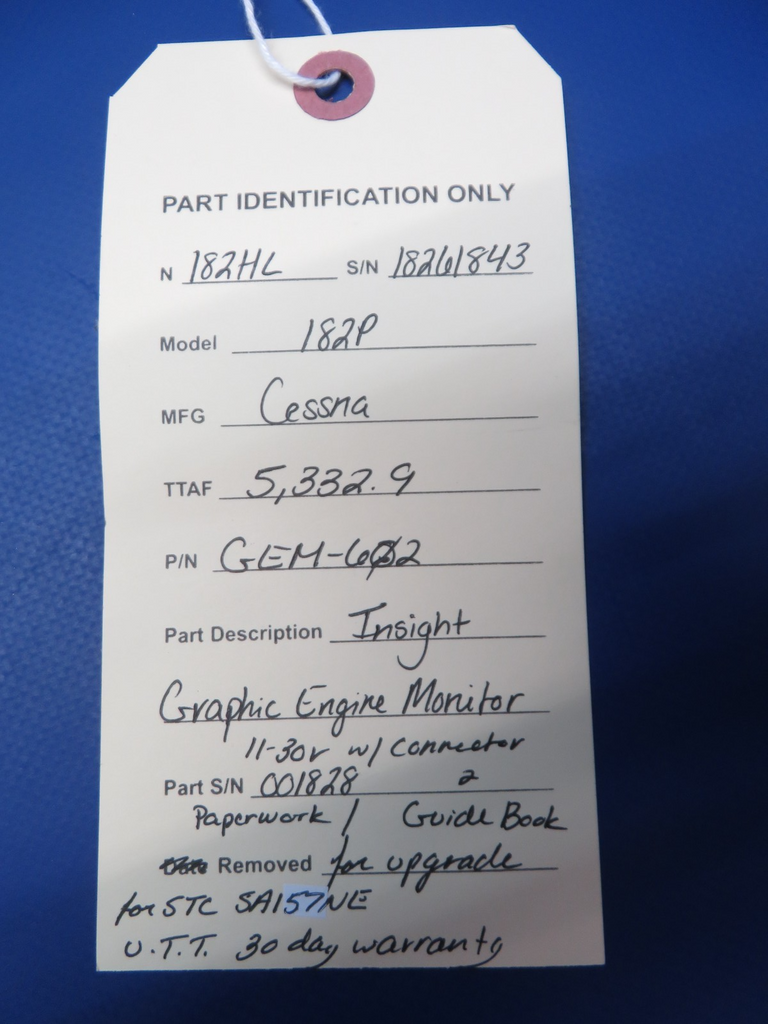 PART IDENTIFICATION ONLY
N 182HL S/N 18261843
Model 182P
MFG Cessna
TTAF 5,332.9
P/N GEM-602
Part Description Insight
Graphic Engine Monitor
11-30v w/ Connector
Part S/N 001828 2
Paperwork / Guide Book
Date Removed for upgrade
for STC SA157NE
U.T.T. 30 day warranty